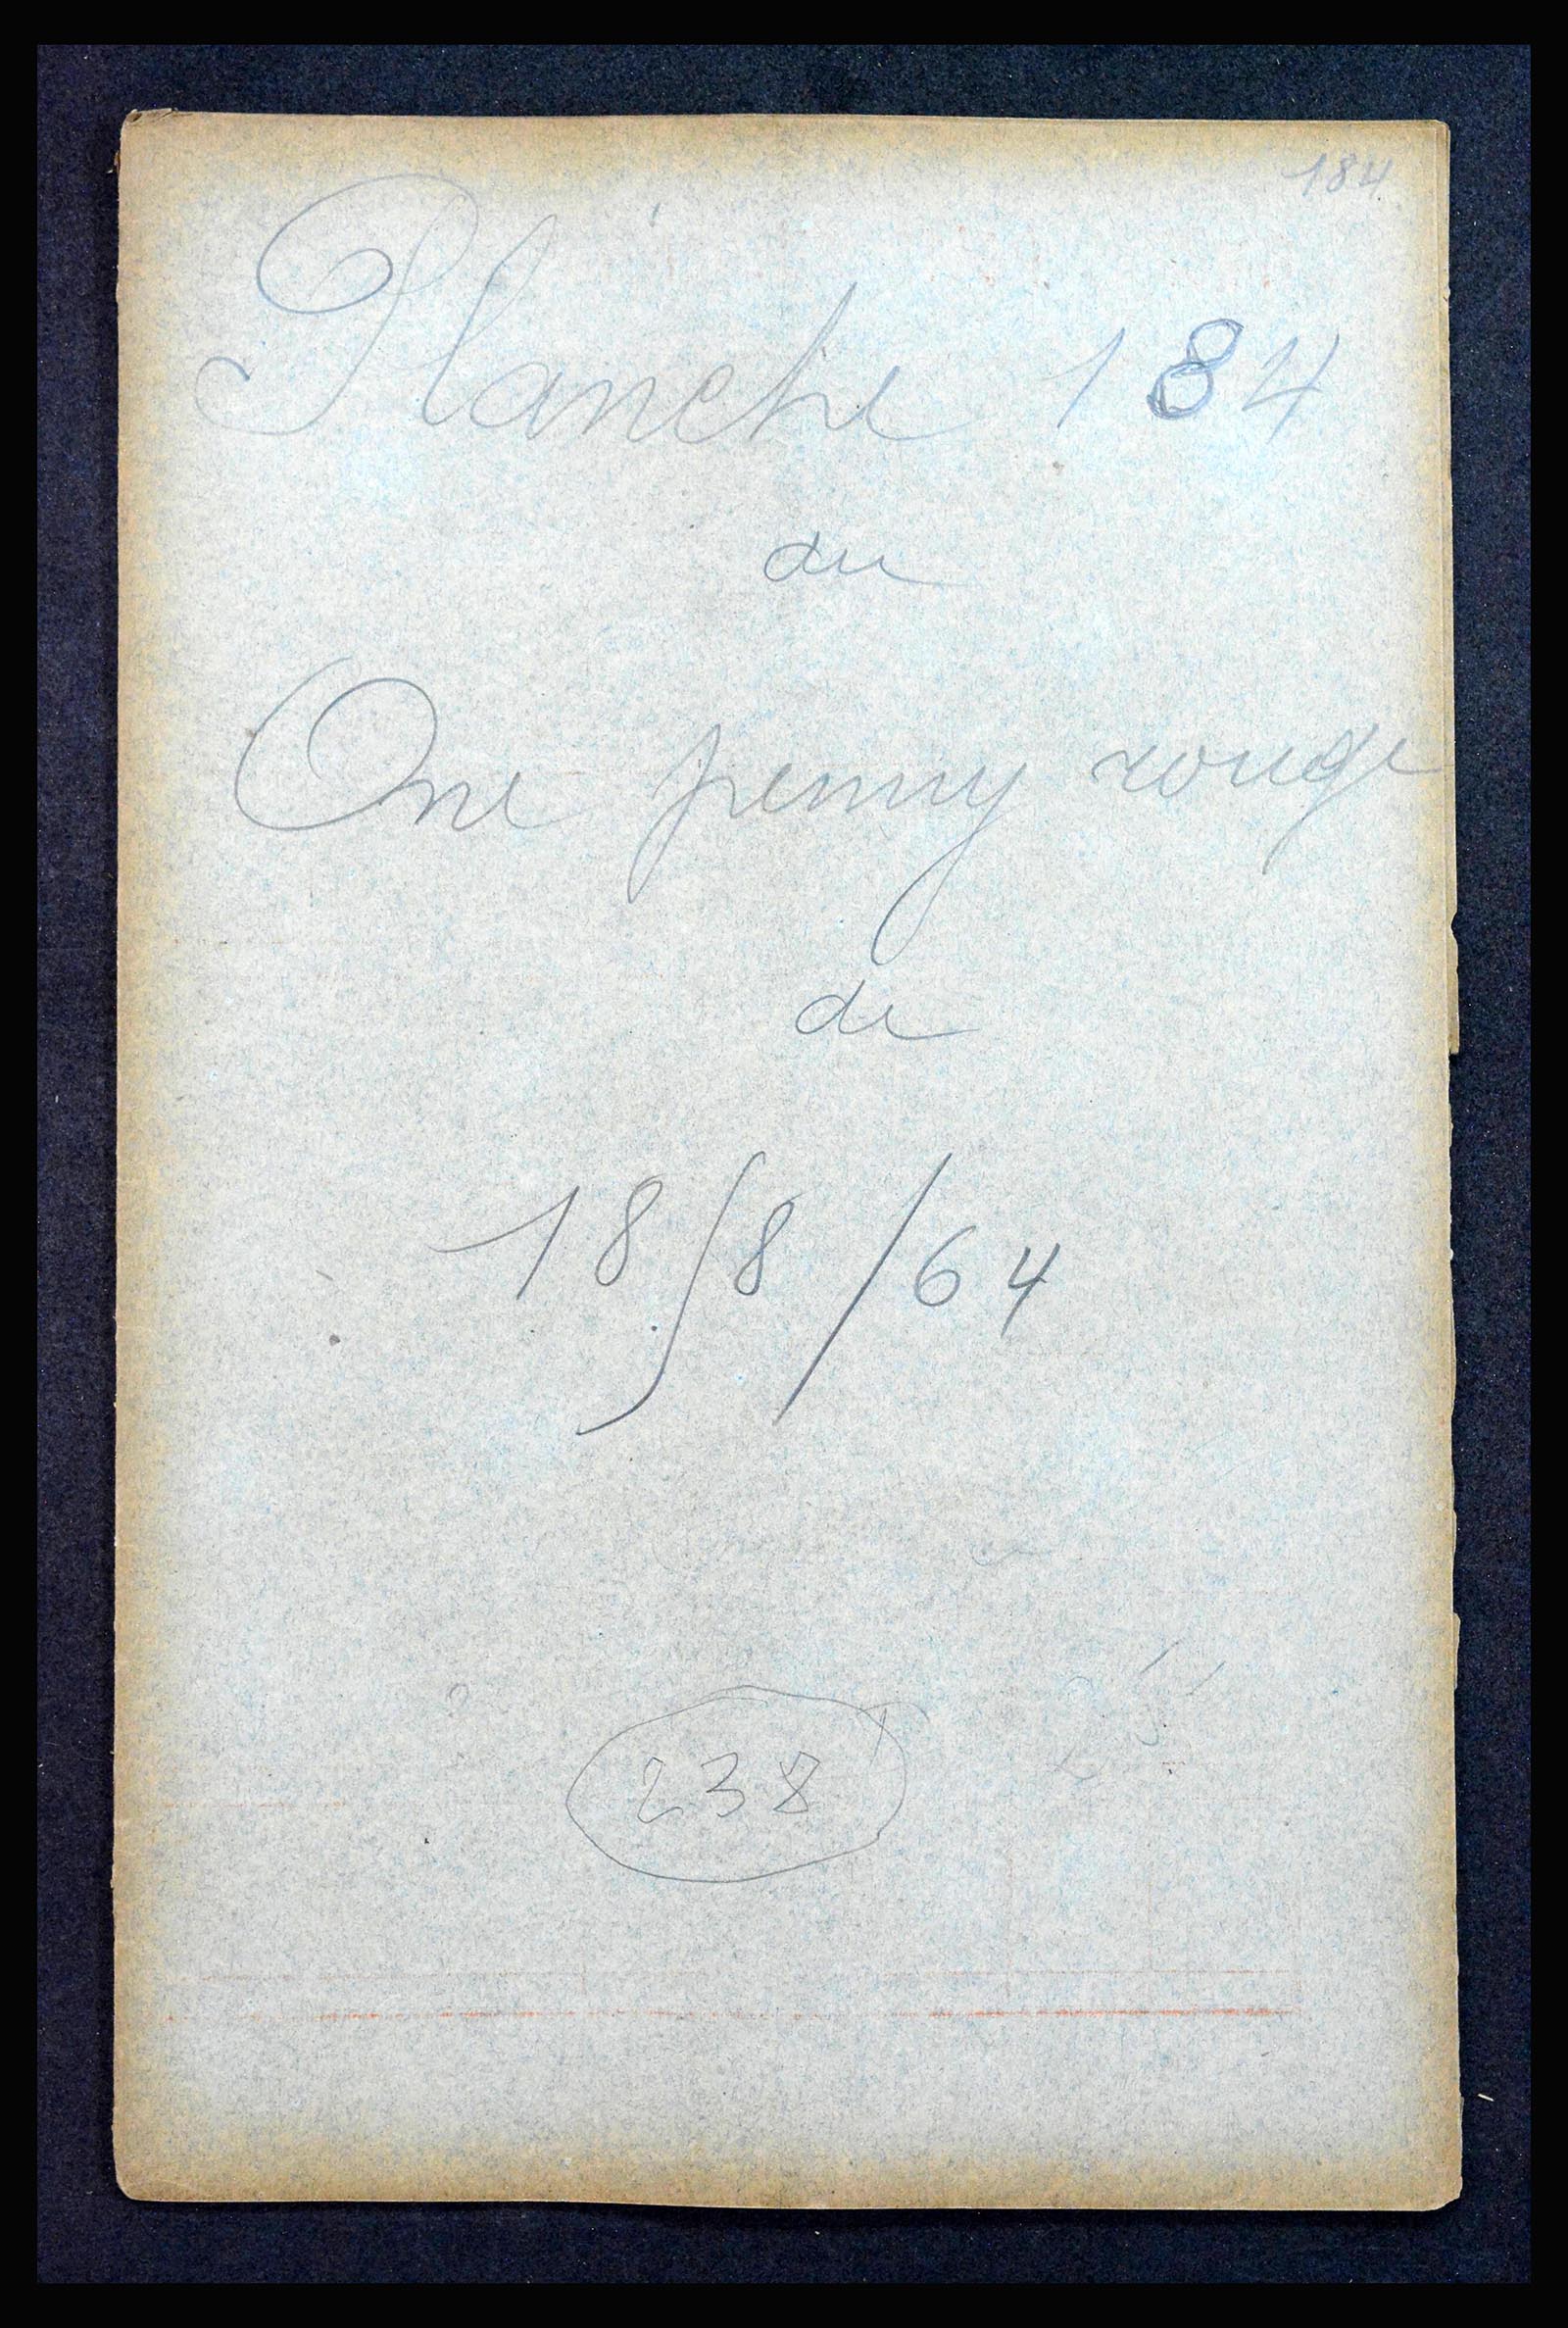 184
Planche 184
du
One penny rouge
de
18/8/64
238